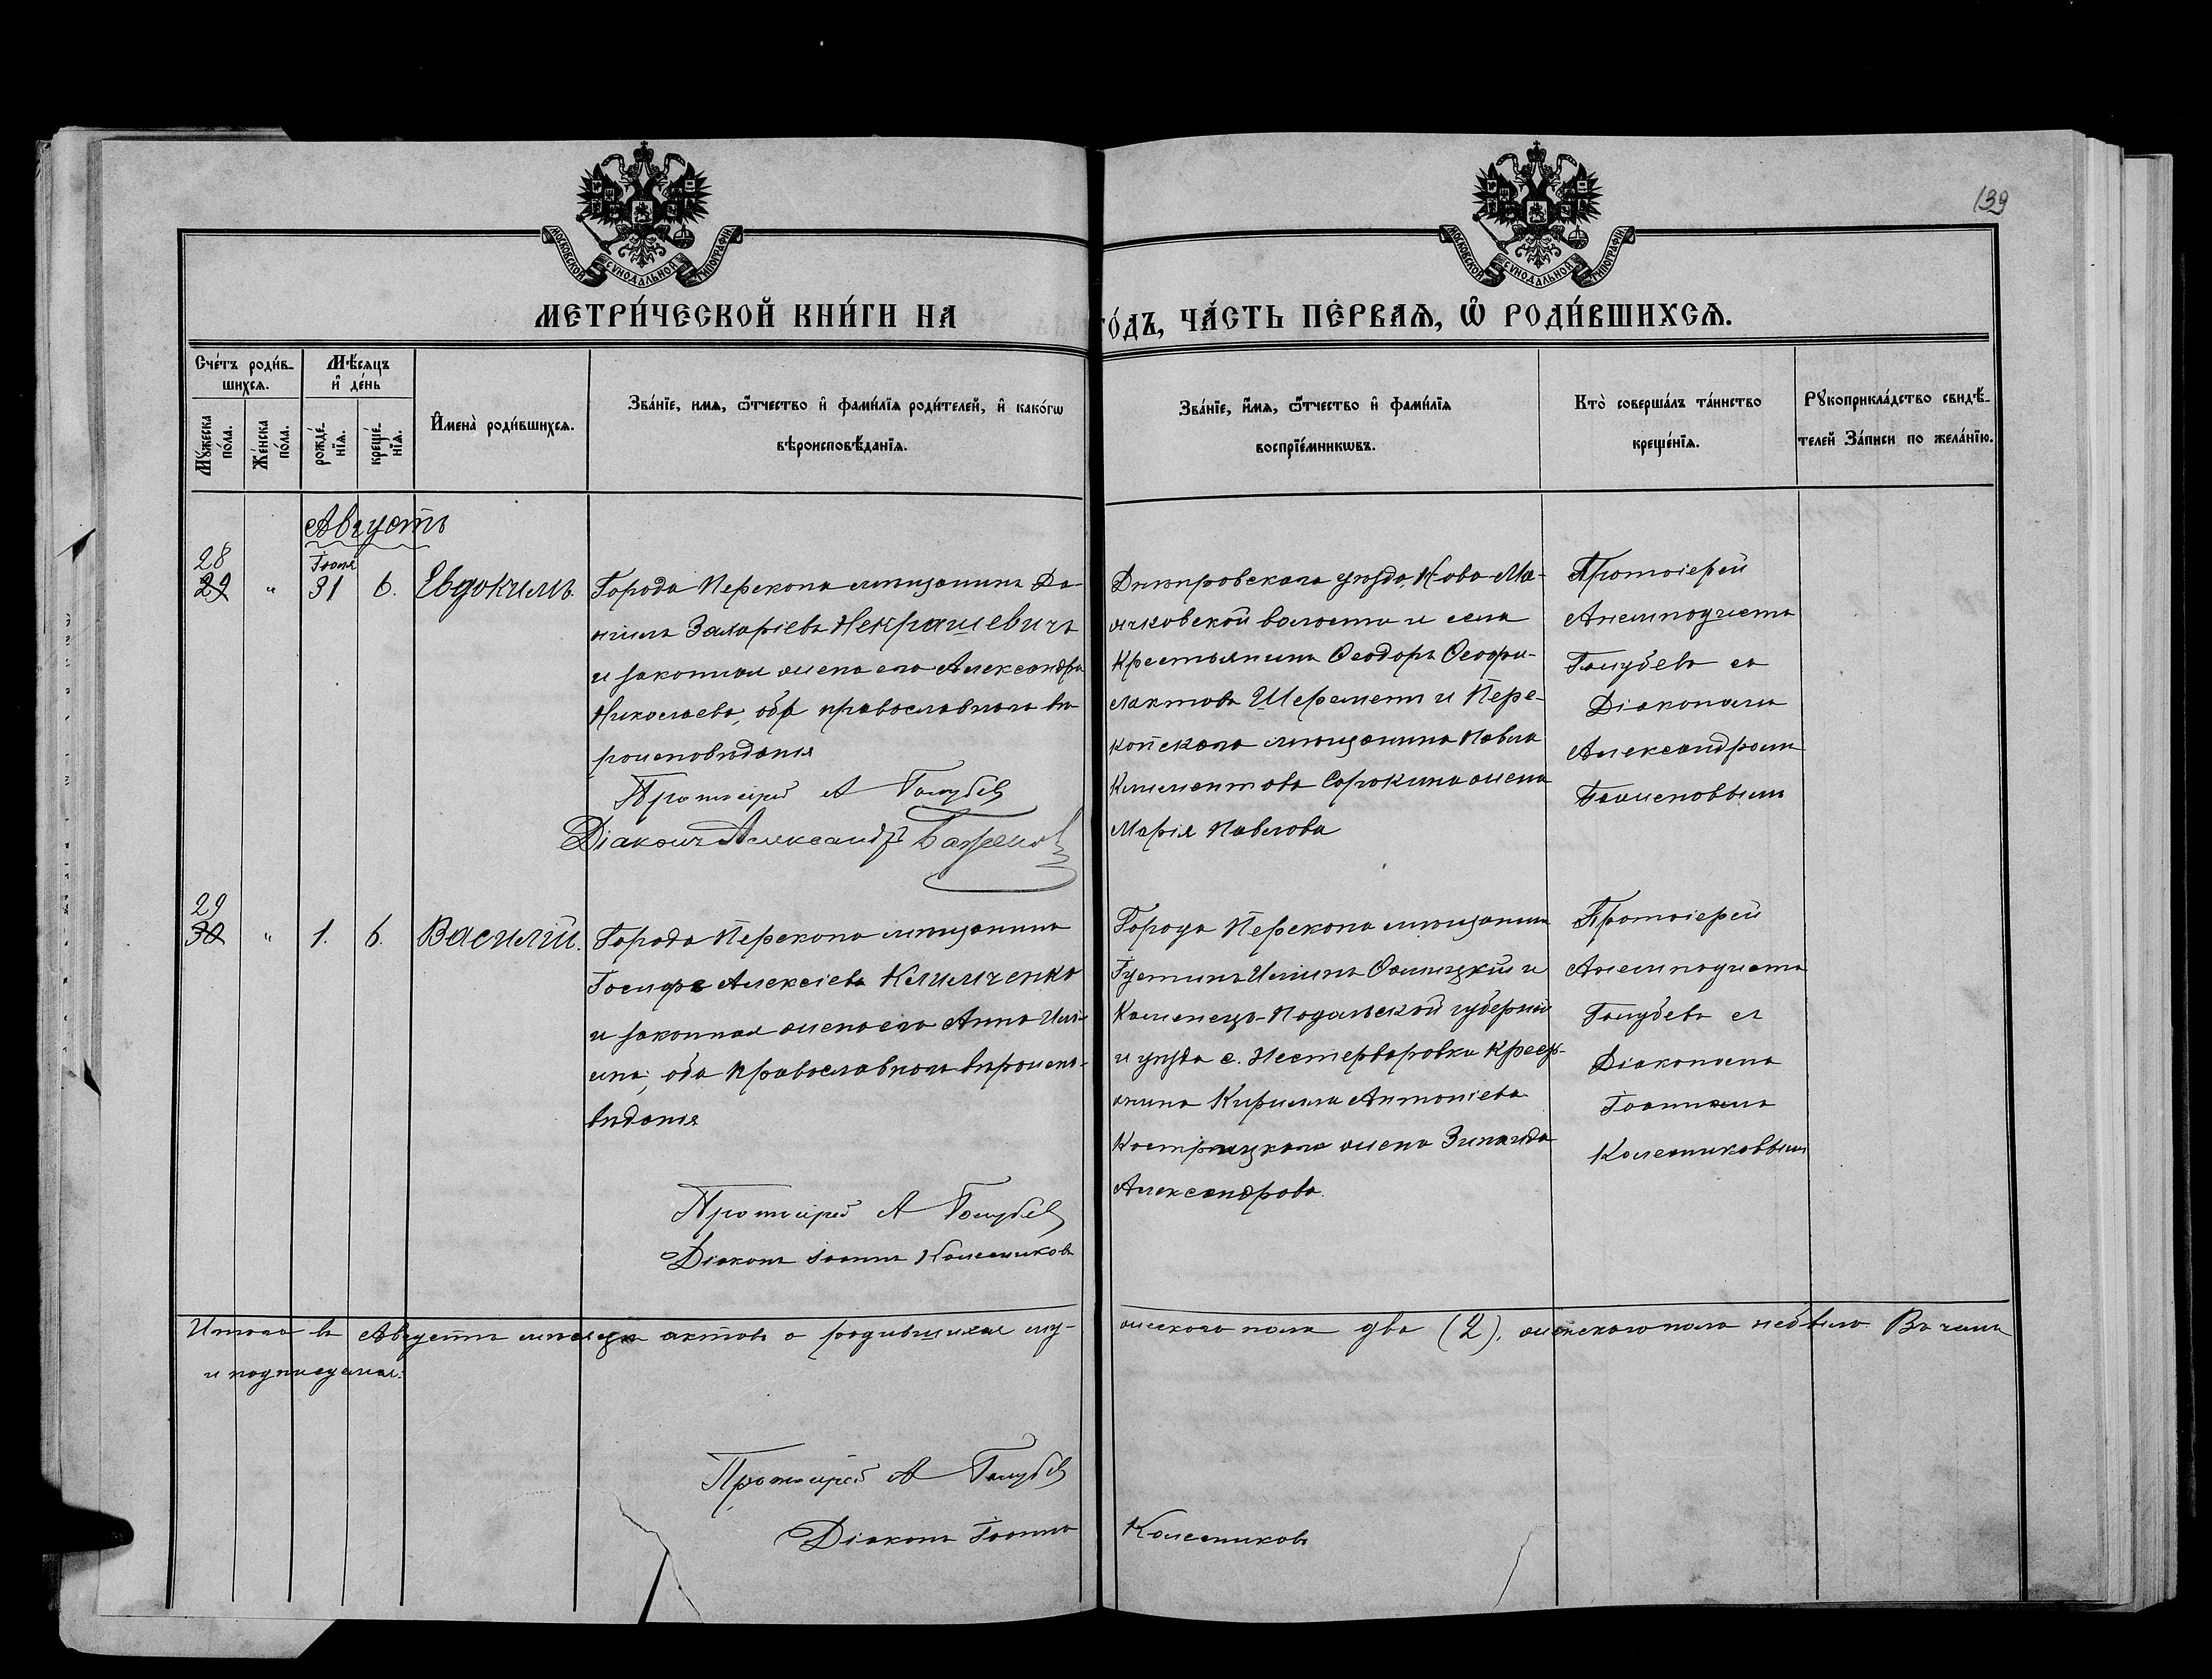 139
МОСКОВСКОЙ СѴНОДАЛЬНОЙ ТИПОГРАФІИ
МОСКОВСКОЙ СѴНОДАЛЬНОЙ ТИПОГРАФІИ
МЕТРИ́ЧЕСКОЙ КНИ́ГИ НА
ГО́ДЪ, ЧА́СТЬ ПЕ́РВАѦ, Ѡ҆ РОДИ́ВШИХСѦ.
Сче́тъ роди́в-
шихсѧ.
Мѣ́сѧцъ
и҆ де́нь
Мꙋ́жеска
по́ла.
Же́нска
по́ла.
рожде́-
нїѧ.
креще́-
нїѧ.
И҆мена̀ роди́вшихсѧ.
Зва́нїе, имѧ, ѻ҆́тчество и҆ фами́лїѧ роди́телей, и҆ како́гѡ
вѣроисповѣ́данїѧ.
Зва́нїе, и҆́мѧ, ѻ҆́тчество и҆ фами́лїѧ
воспрїе́мникѡвъ.
Кто̀ соверша́лъ та́инство
креще́нїѧ.
Рꙋкоприкла́дство свидѣ́-
телей За́писи по жела́нїю.
Августъ
28
29 " Іюля 31 6. Евдокимъ.
Города Перекопа мѣщанинъ Да-
ніилъ Захаріевъ Некрашевичъ
и законная жена его Александра
Николаева, оба православнаго вѣ-
роисповѣданія
Протоіерей А Голубевъ
Діаконъ Александръ Баженовъ
Днѣпровскаго уѣзда, Ново-Ма-
ячковской волости и села
крестьянинъ Ѳеодоръ Ѳеофи-
лактовъ Шереметъ и Пере-
копскаго мѣщанина Павла
Климентова Сорокина жена
Марія Павлова
Протоіерей
Анемподистъ
Голубевъ съ
Діакономъ
Александромъ
Баженовымъ
29
30 " 1. 6. Василій.
Города Перекопа мѣщанинъ
Іосифъ Алексіевъ Климченко
и законная жена его Анна Илі-
ина, оба православнаго вѣроиспо-
вѣданія
Протоіерей А Голубевъ
Діаконъ Іоаннъ Колесниковъ
Города Перекопа мѣщанинъ
Іустинъ Иліинъ и
Каменецъ-Подольской губерніи
и уѣзда с. Нестерваровки крестья-
нина Кирилла Антоніева
жена Зинаида
Александрова.
Протоіерей
Анемподистъ
Голубевъ съ
Діакономъ
Іоанномъ
Колесниковымъ
Итого въ Августѣ мѣсяцѣ актовъ о родившихся му-
жескаго пола два (2), женскаго пола небыло. Въ чемъ
и подписуемся:
Протоіерей А Голубевъ
Діаконъ Іоаннъ Колесниковъ